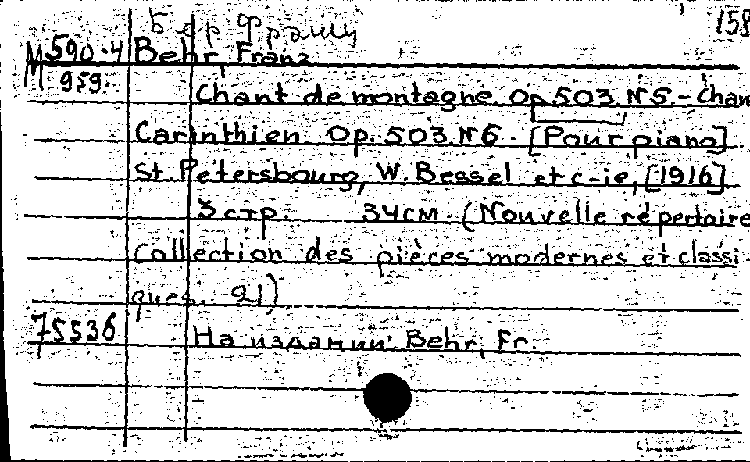 Бер Франц 158
М590-4 Behr, Franz
М 959. Chant de montagne. Op. 503 N5. - Chan
Carinthien. Op. 503 N6. [Pour piano]
St. Petersbourg, W. Bessel et c-ie, [1916]
3 стр. 34 см. (Nouvelle répertoire
Collection des pièces modernes et classi-
ques. 21)
75536 На издании: Behr, Fr.